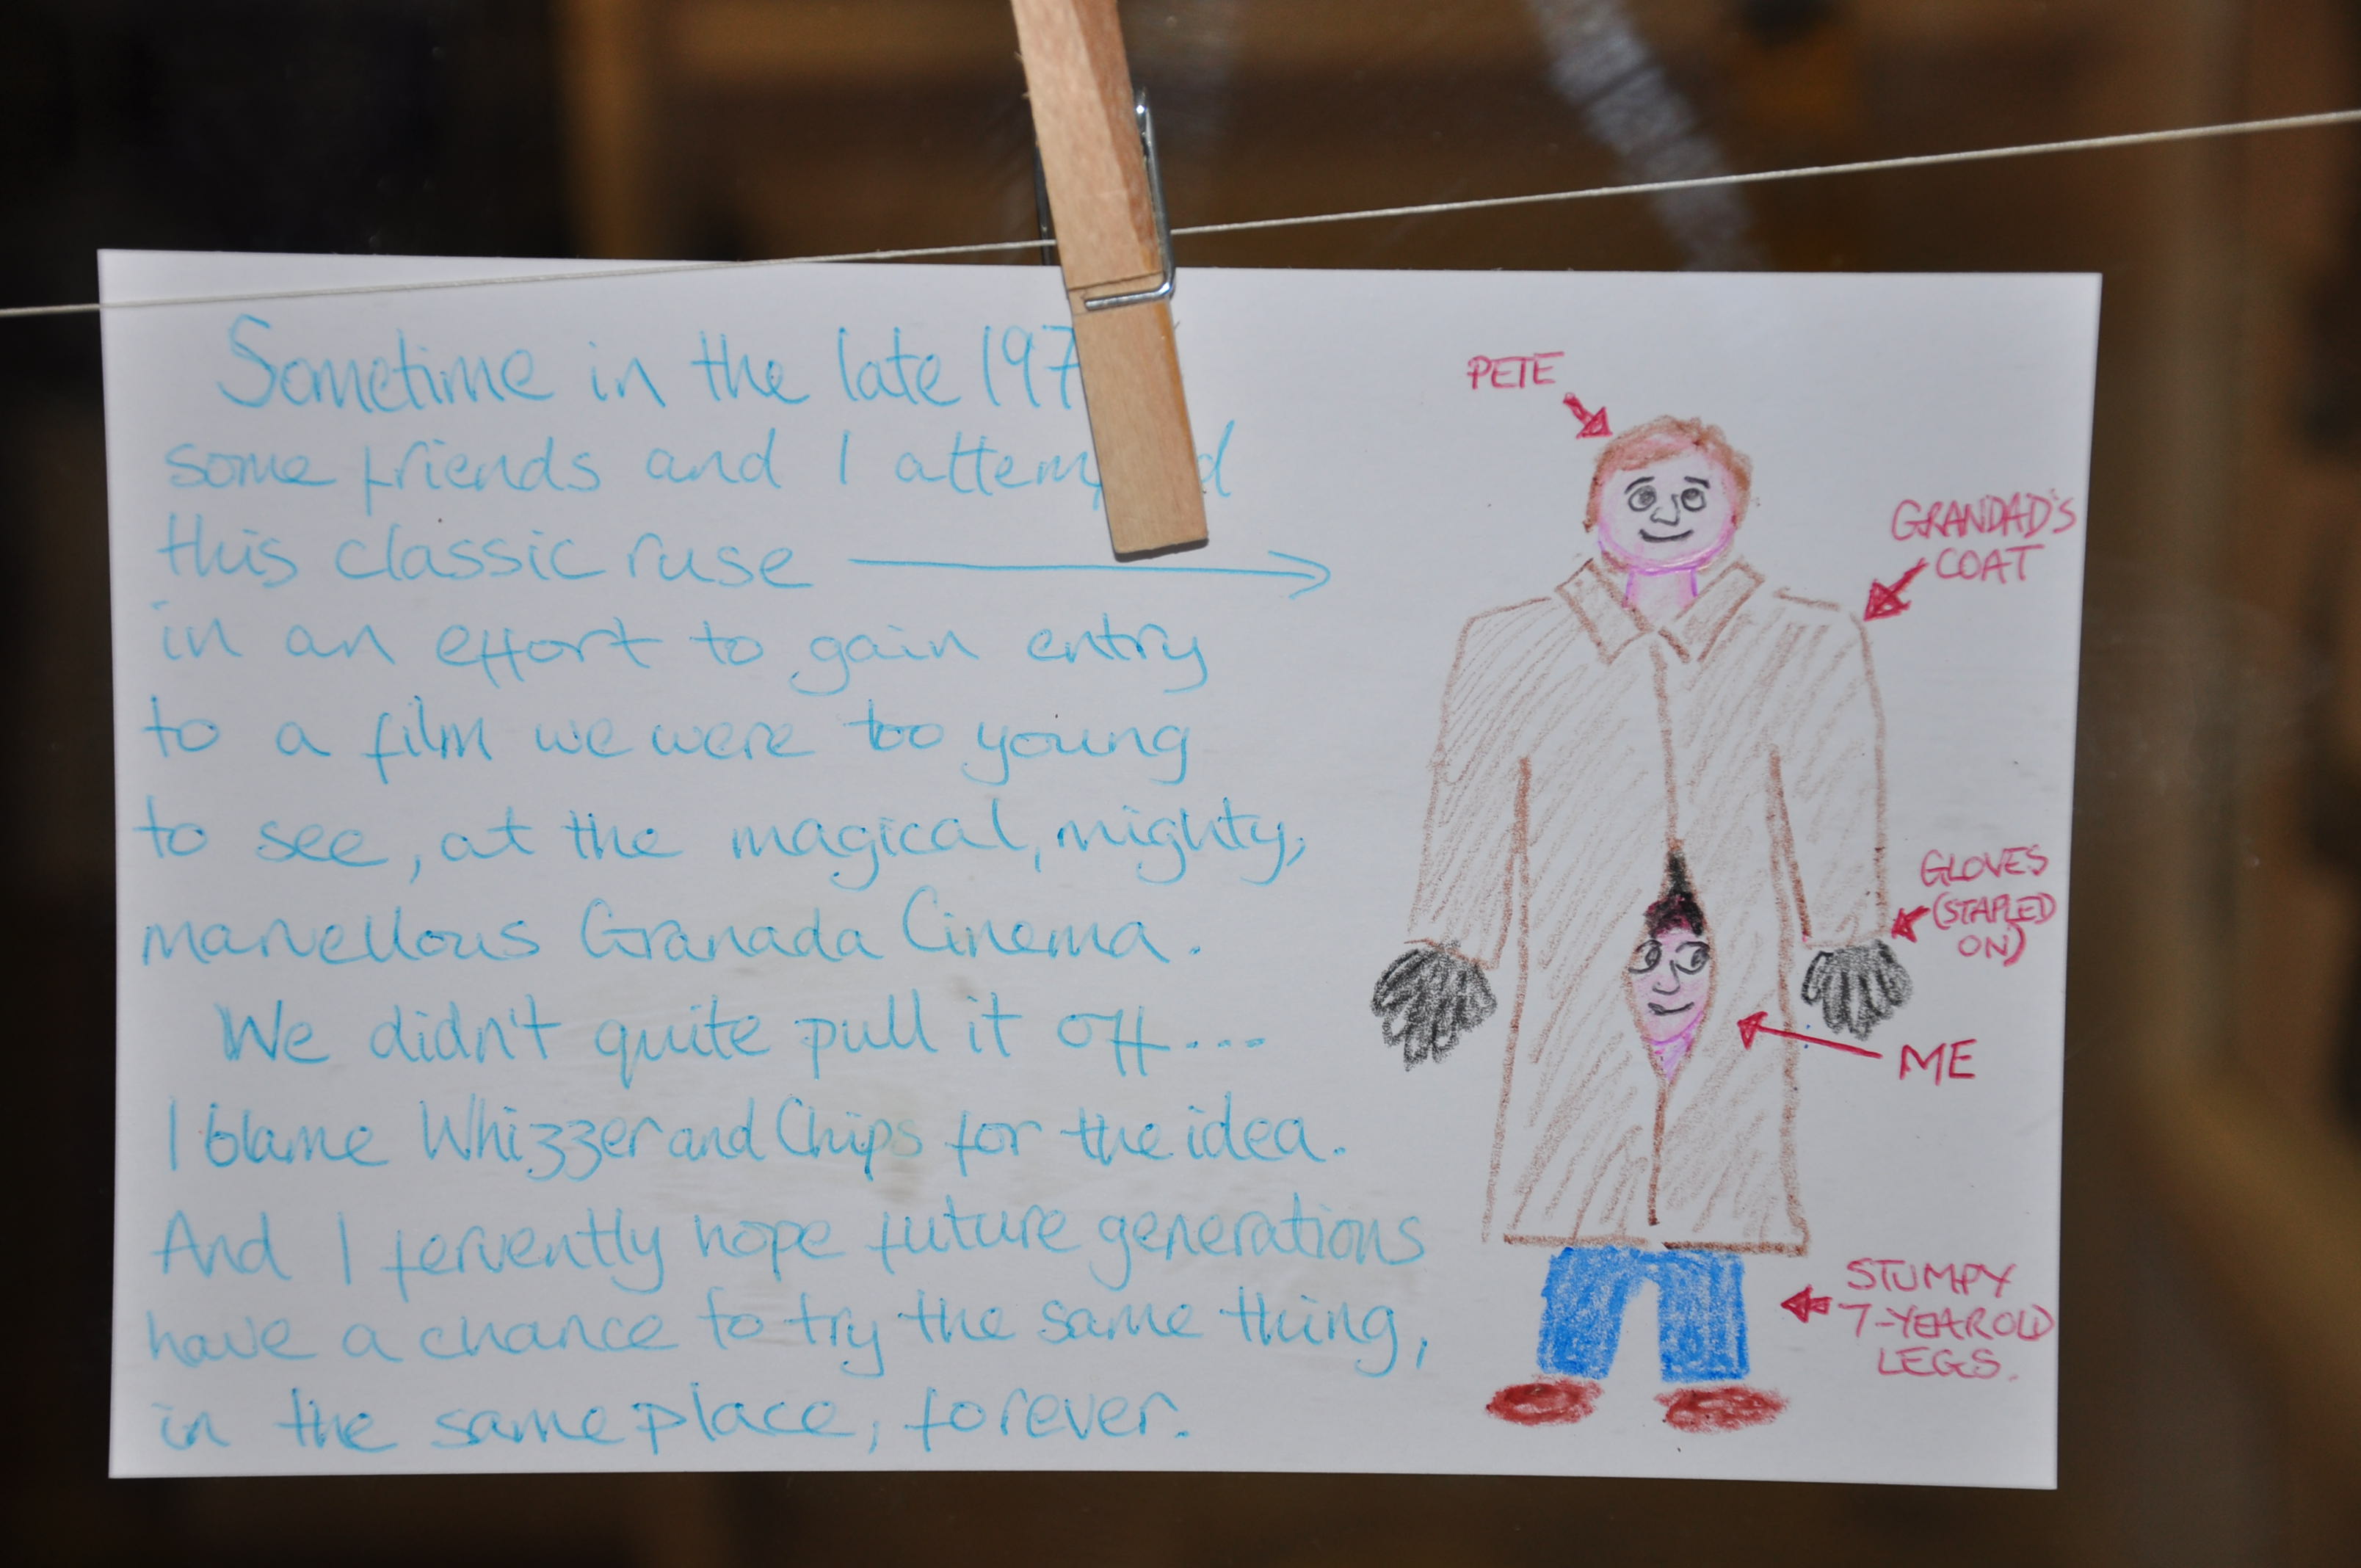 Sometime in the late 197
some friends and I attem d
this classic ruse
in an effort to gain entry
to a film we were too young
to see, at the magical, mighty,
marvellous Granada Cinema.
We didn't quite pull it off...
I blame Whizzer and Chips for the idea.
And I fervently hope future generations
have a chance to try the same thing,
in the same place, forever.
PETE
GRANDAD'S
COAT
GLOVES
(STAPLED
ON)
ME
STUMPY
7-YEAR OLD
LEGS.